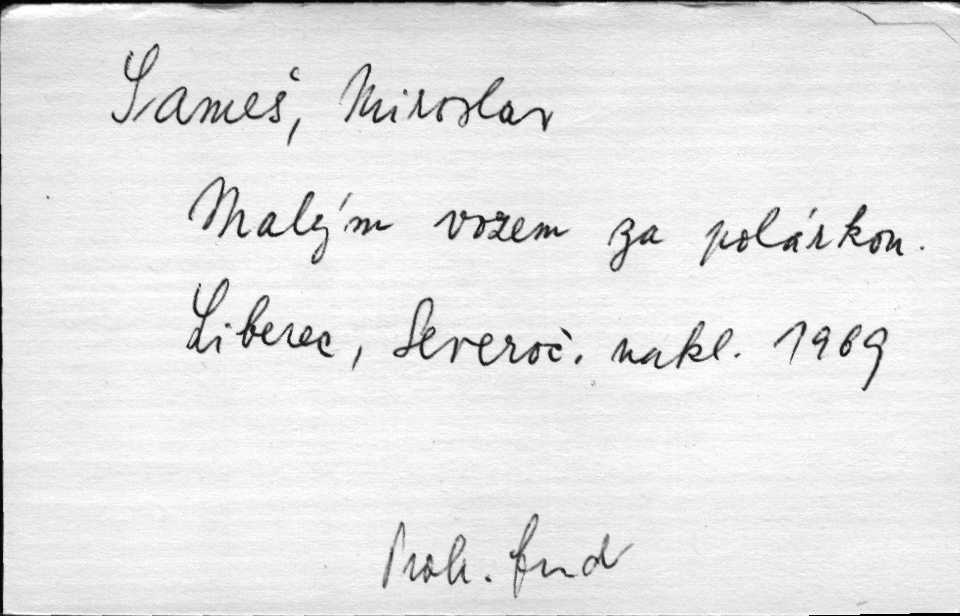 Sameš, Miroslav
Malým vozem za polárkou.
Liberec, Severoč. nakl. 1969
Proh. fond